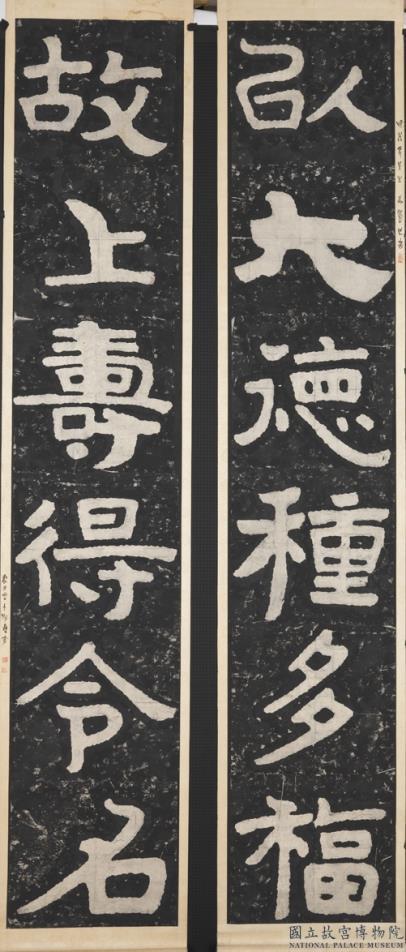 以大德種多福
故上壽得令名
國立故宮博物院
NATIONAL PALACE MUSEUM